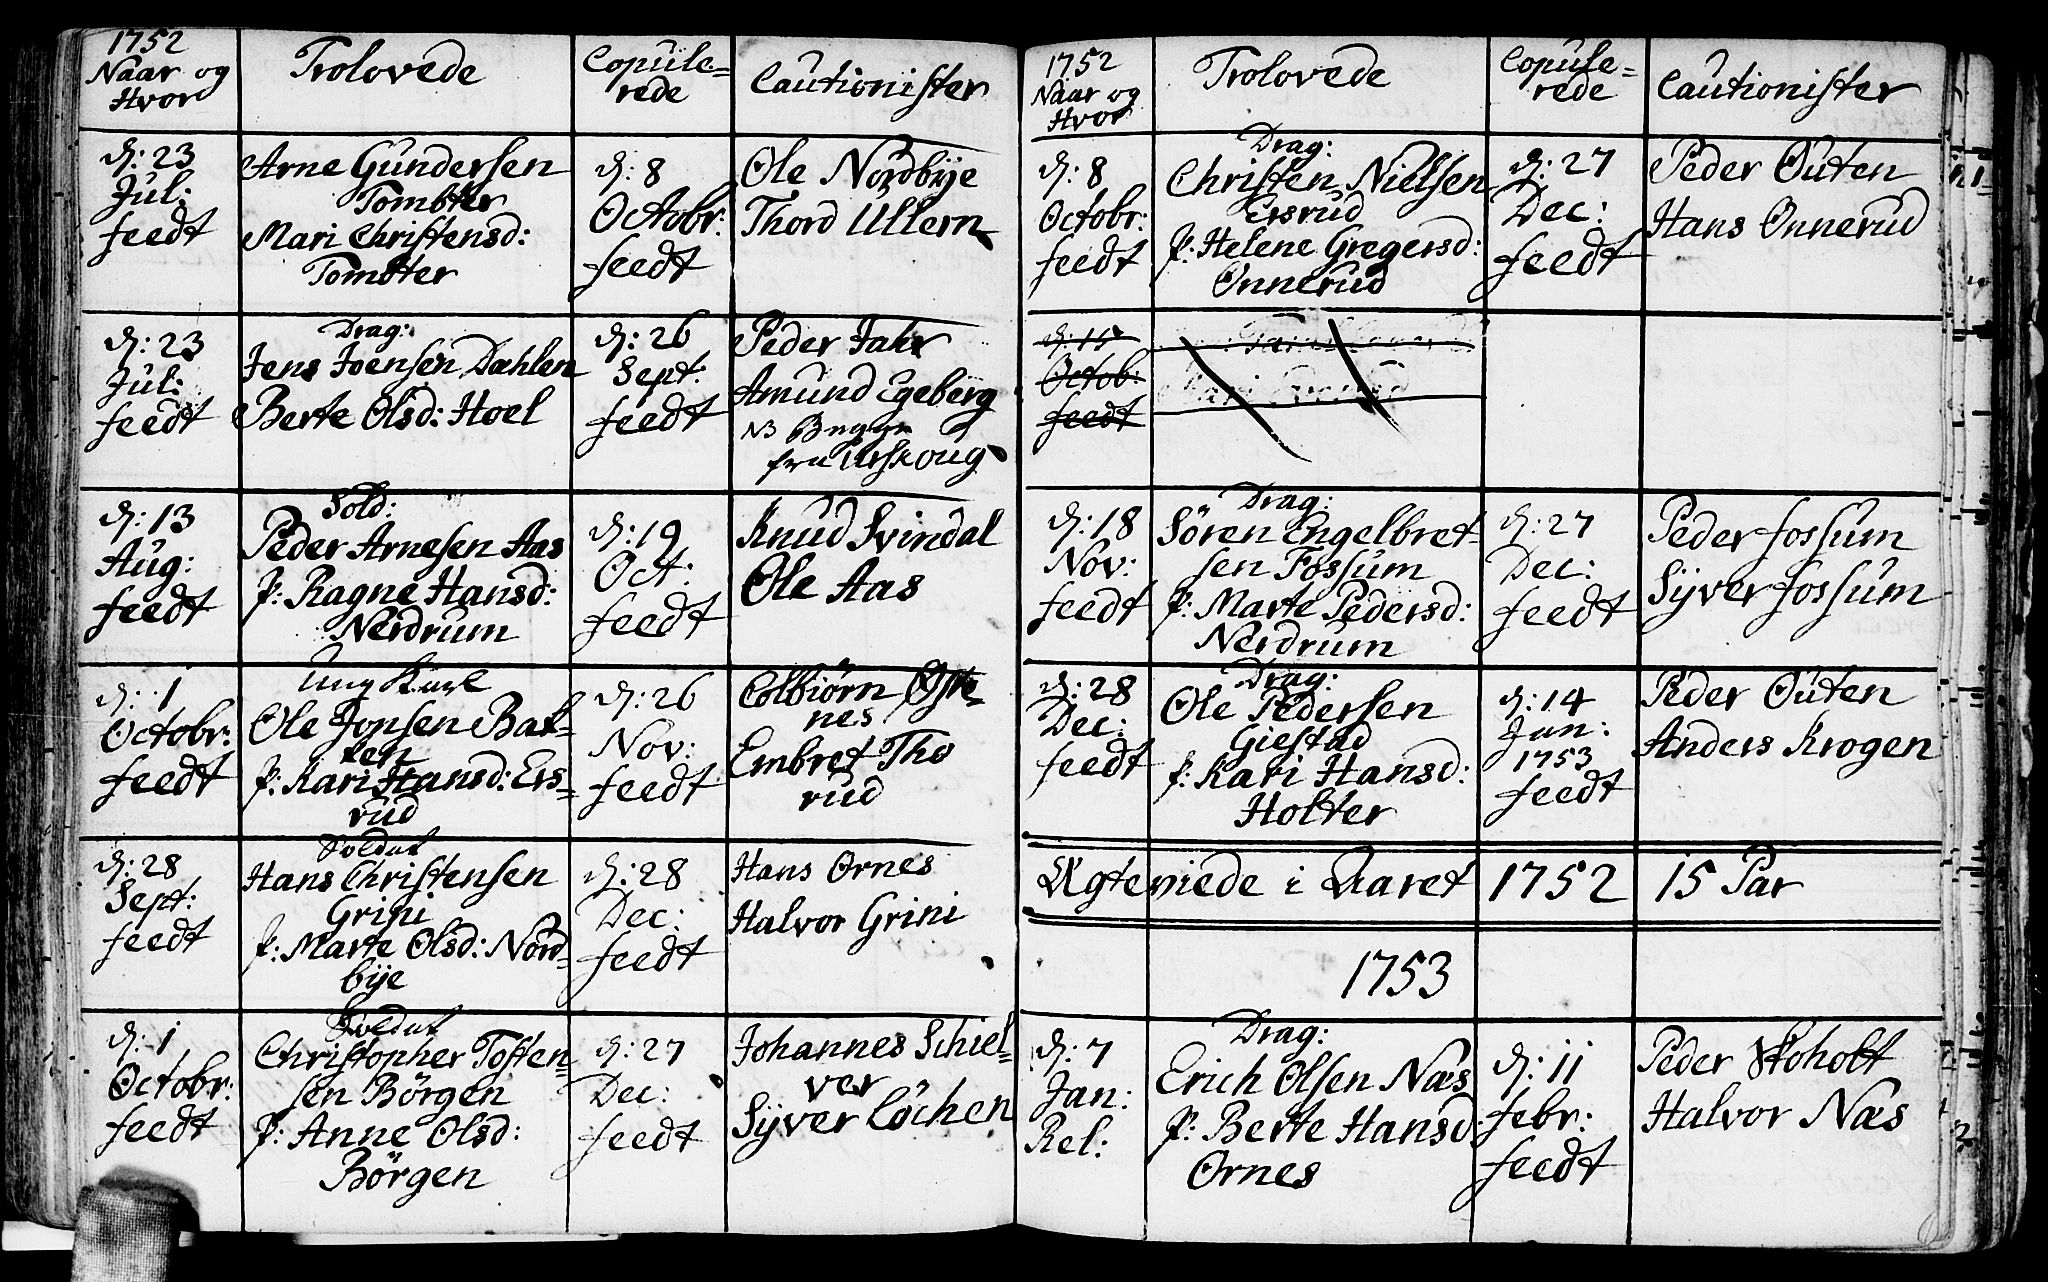 1752
Naar og
Hvor
Trolovede
Copule=
rede
Cautionister
d: 23
Jul:
feedt
Arne Gundersen
Tombter
Mari Christensd:
Tombter
d: 8
Octobr:
feedt
Ole Nordbÿe
Thord Ullern
d: 23
Jul:
feedt
Drag:
Jens Joensen Dæhlen
Berte Olsd: Hoel
d: 26
Sept:
feedt
Peder Jahr
Amund Egeberg
NB Begge
fra Urskoug
d: 13
Aug:
feedt
Sold:
Peder Arnesen Aas
P: Ragne Hansd:
Nerdrum
d: 19
Oct:
feedt
Knud Svindal
Ole Aas
d: 1
Octobr:
feedt
Ung Karl
Ole Jonsen Bak=
ken
P: Kari Hansd: Ers=
rud
d: 26
Nov:
feedt
Colbiörn Øste=
nes
Embret Tho
rud
d: 28
Sept:
feedt
Soldat
Hans Christensen
Grini
P: Marte Olsd: Nord=
bÿe
d: 28
Dec:
feedt
Hans Ornes
Halvor Grini
d: 1
Octobr:
feedt
Soldat
Christopher Tosten=
sen Börgen
P: Anne Olsd:
Börgen
d: 27
Dec:
feedt
Johannes Schiel=
ver
Sÿver Löchen
1752
Naar og
Hvor
Trolovede
Copule=
rede
Cautionister
d: 8
Octobr:
feedt
Drag:
Christen Nielsen
Ersrud
P: Helene Gregersd:
Onnerud
d: 27
Dec:
feedt
Peder Outen
Hans Onnerud
d: 15
Octob:
feedt
d: 18
Nov:
feedt
Drag:
Sören Engelbret=
sen Fossum
P: Marte Pedersd:
Nerdrum
d: 27
Dec:
feedt
Peder Fossum
Sÿver Fossum
d: 28
Dec:
feedt
Drag:
Ole Pedersen
Giestad
P: Kari Hansd:
Holter
d: 14
Jan:
1753
feedt
Peder Outen
Anders Krogen
Ægteviede i Aaret 1752 15 Par
1753
d: 7
Jan:
Rel:
Drag:
Erich Olsen Næs
P: Berte Hansd:
Ornes
d: 11
febr:
feedt
Peder Skoholt
Halvor Næs